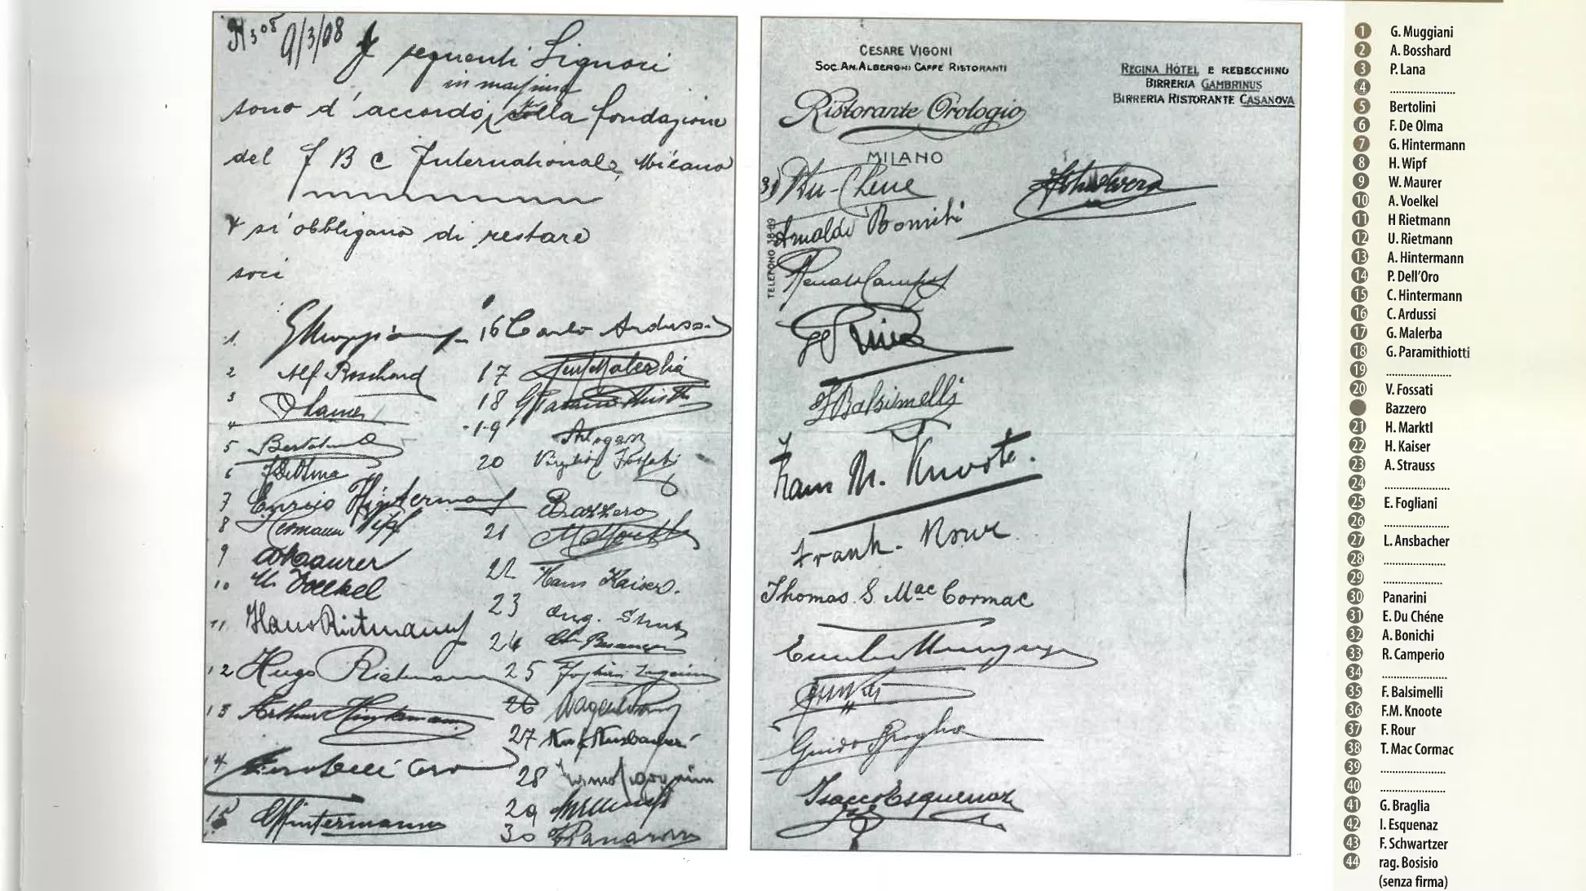 9/3/08
I seguenti Signori
in massima
sono d'accordo, sulla fondazione
del F B C Internationale, Milano
& si obbligano di restare
soci
1
2 Alf Bosshard
3
4
5 Bertolini
6
7 Enrico Hintermann
8 Hermann Wipf
9 W Maurer
10 Voelkel
11 Hans Rietmann
12 Hugo Rietmann
13 Arthur Hintermann
14
15 C Hintermann
16 Carlo Ardussi
17
18
19
20 Virgilio Fossati
Bazzero
21
22 Hans Kaiser.
23 Aug. Strauss
24
25
26
27
28
29
30 Panarini
CESARE VIGONI
SOC. AN. ALBERGHI CAFFÈ RISTORANTI
REGINA HÔTEL E REBECCHINO
BIRRERIA GAMBRINUS
BIRRERIA RISTORANTE CASANOVA
Ristorante Orologio
MILANO
TELEFONO 38-09
31 Du-Chène
Arnaldo Bonichi
Renato Camperio
F Balsimelli
Hans M. Knoote.
Frank. Rour
Thomas. S. Mac Cormac
Guido Braglia
Isacco Esquenaz
1 G. Muggiani
2 A. Bosshard
3 P. Lana
4 ......................
5 Bertolini
6 F. De Olma
7 G. Hintermann
8 H. Wipf
9 W. Maurer
10 A. Voelkel
11 H Rietmann
12 U. Rietmann
13 A. Hintermann
14 P. Dell'Oro
15 C. Hintermann
16 C. Ardussi
17 G. Malerba
18 G. Paramithiotti
19 ......................
20 V. Fossati
Bazzero
21 H. Marktl
22 H. Kaiser
23 A. Strauss
24 ......................
25 E. Fogliani
26 ......................
27 L. Ansbacher
28 ......................
29 ......................
30 Panarini
31 E. Du Chéne
32 A. Bonichi
33 R. Camperio
34 ......................
35 F. Balsimelli
36 F.M. Knoote
37 F. Rour
38 T. Mac Cormac
39 ......................
40 ......................
41 G. Braglia
42 I. Esquenaz
43 F. Schwartzer
44 rag. Bosisio
(senza firma)